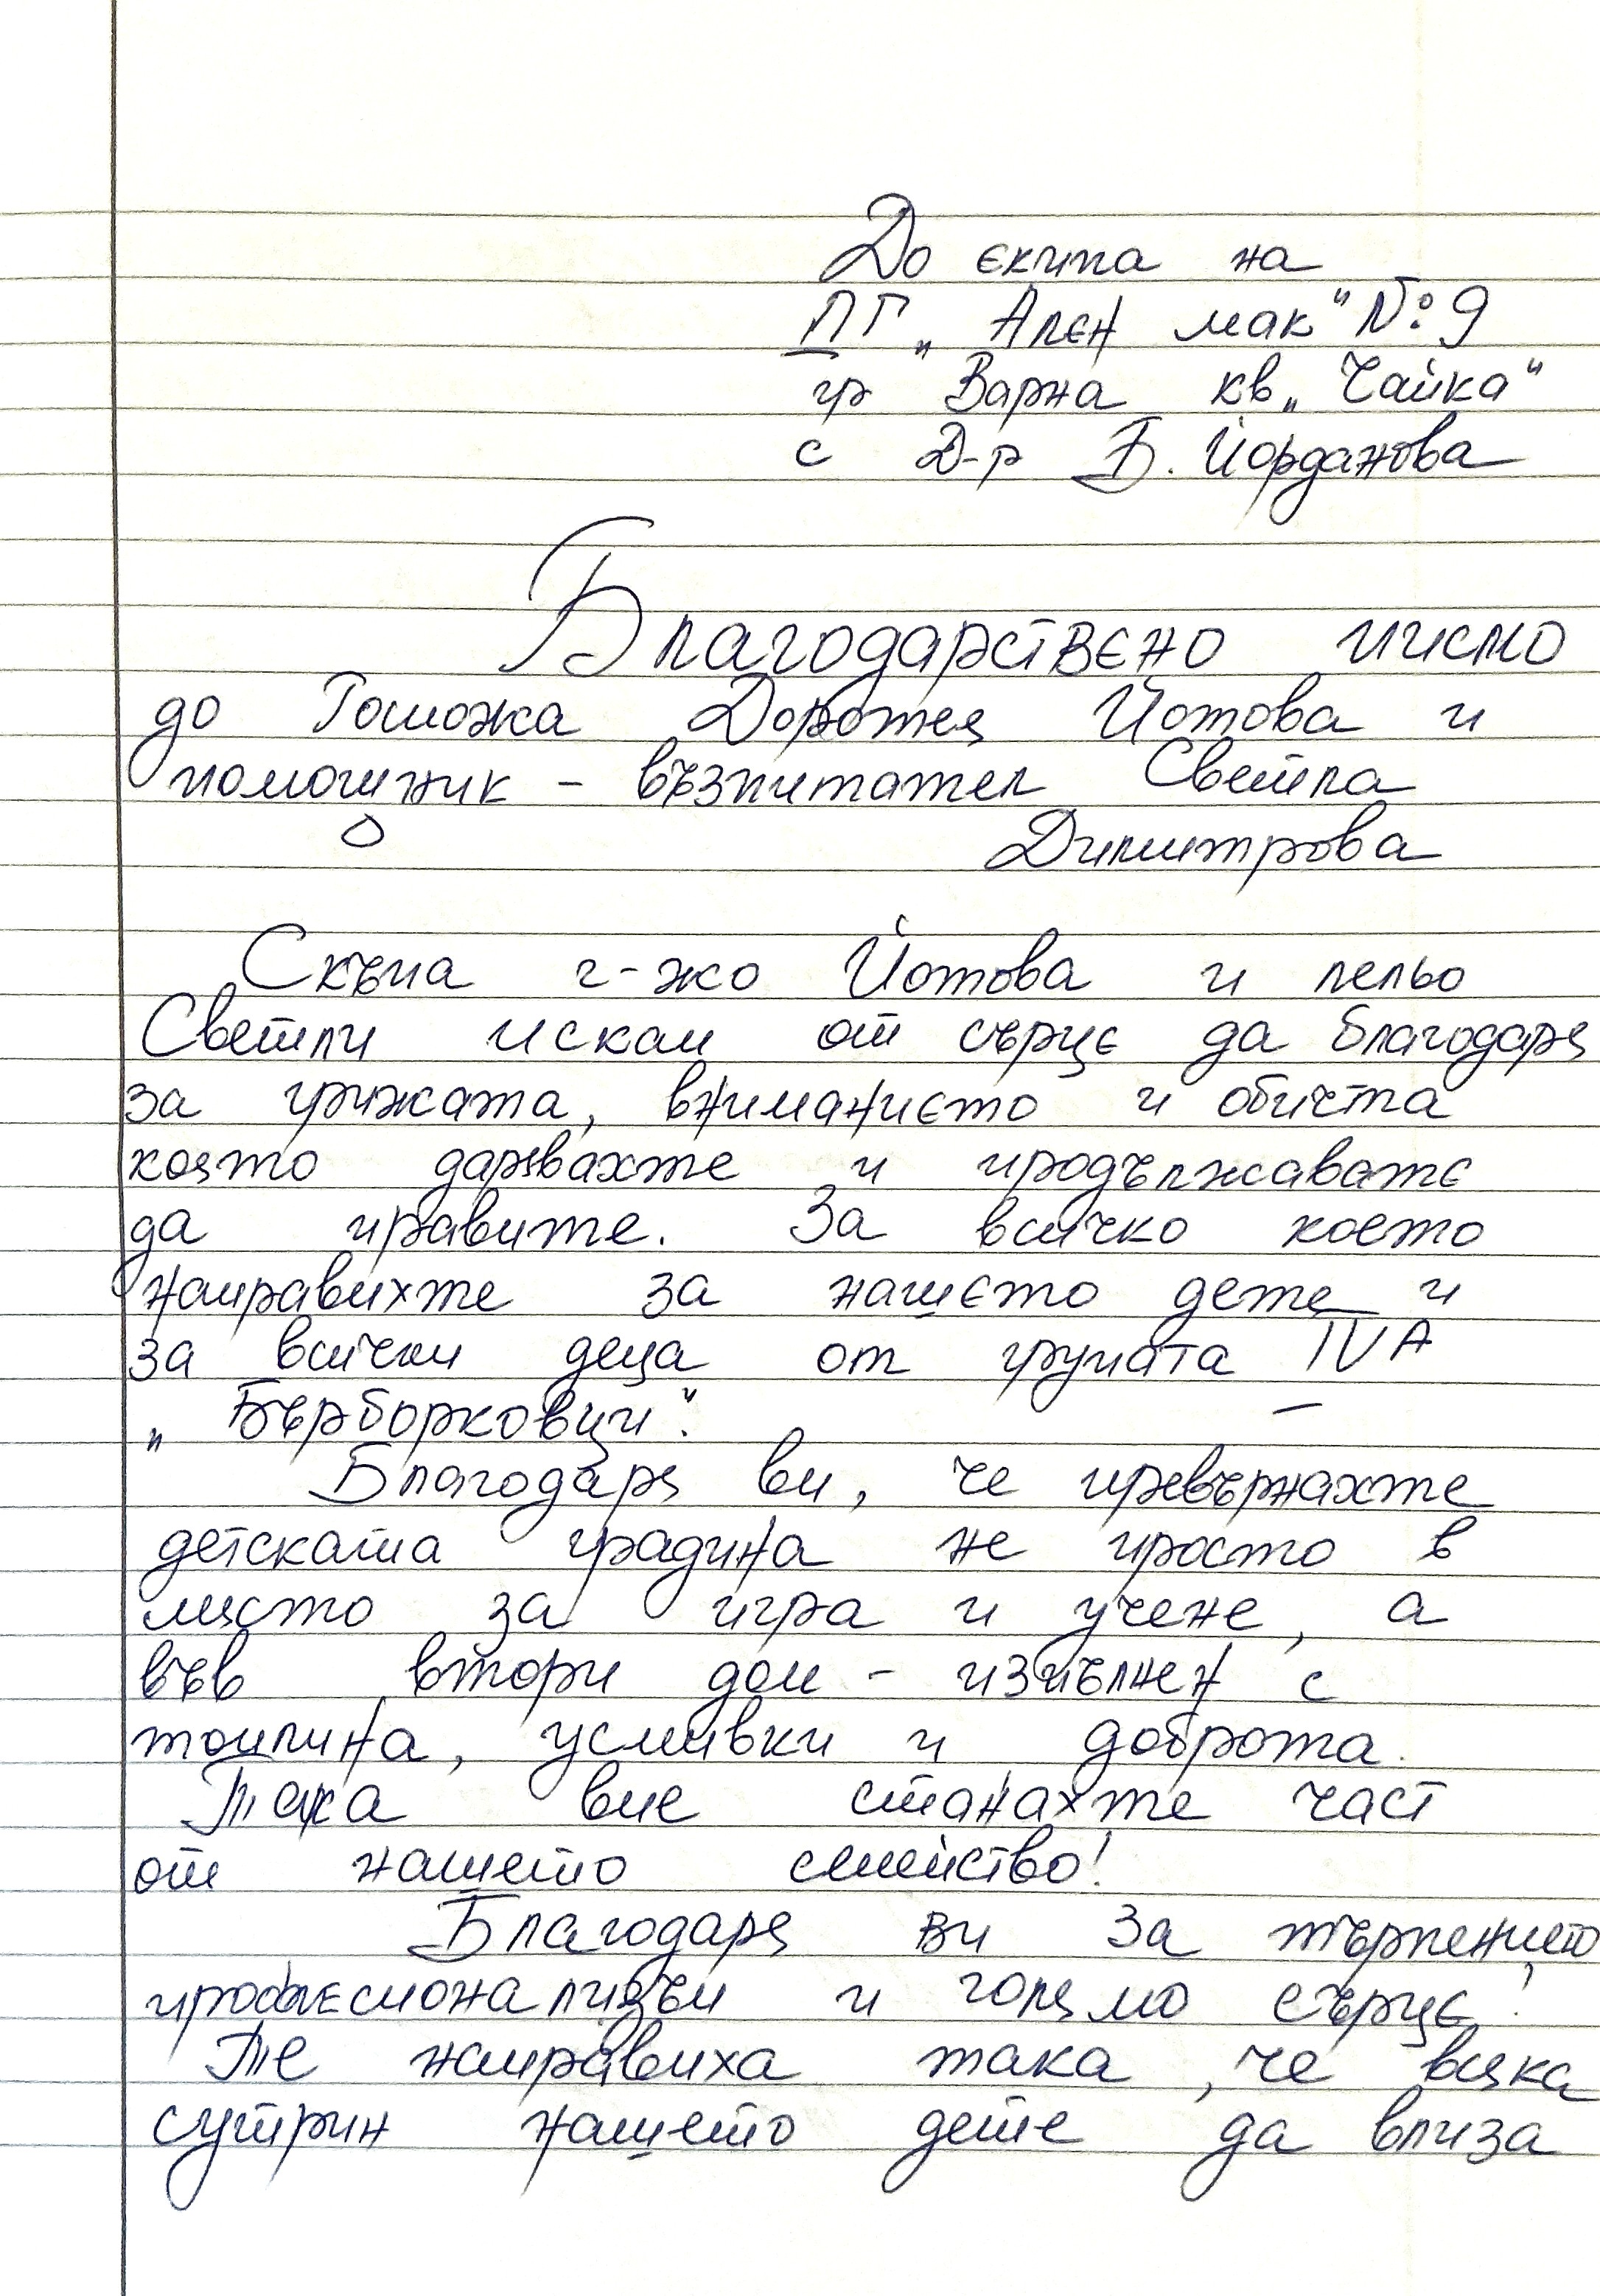 До екипа на
ДГ „Ален мак" №: 9
гр Варна кв „Чайка"
с Д-р Б. Йорданова
Благодарствено писмо
до Госпожа Доротея Йотова и
помощник - възпитател Светла
Димитрова
Скъпа г-жо Йотова и лельо
Светли искам от сърце да благодаря
за грижата, вниманието и обичта
която дарявахте и продължавате
да правите. За всичко което
направихте за нашето дете и
за всички деца от групата IV А
„Бърборковци".
Благодаря ви, че превърнахте
детската градина не просто в
място за игра и учене, а
във втори дом - изпълнен с
топлина, усмивки и доброта.
Така вие станахте част
от нашето семейство!
Благодаря ви за търпението,
професионализъм и голямо сърце!
Те направиха така, че всяка
сутрин нашето дете да влиза